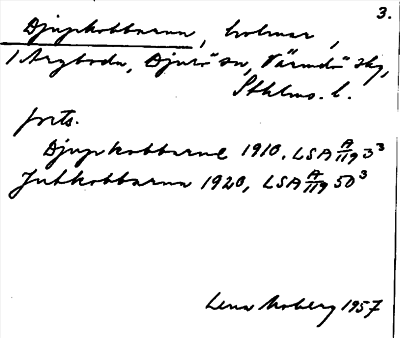 3.
Djupkobbarna, holmar,
i Ängboda, Djurö sn, Värmdö skg,
Sthlms. l.
forts.
Djupkobbarne 1910. LSA A/119 3³
Jutkobbarna 1920, LSA A/119 50³
Lena Moberg 1957